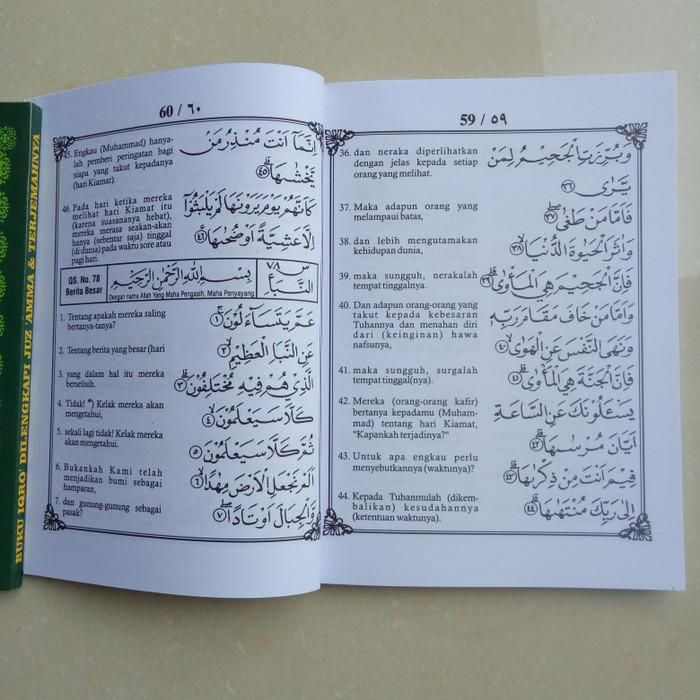 59 / ٥٩
36. dan neraka diperlihatkan
dengan jelas kepada setiap
orang yang melihat.
وَبُرِّزَتِ الْجَحِيْمُ لِمَنْ
يَّرٰى ٣٦
37. Maka adapun orang yang
melampaui batas,
فَاَمَّا مَنْ طَغٰى ٣٧
38. dan lebih mengutamakan
kehidupan dunia,
وَاٰثَرَ الْحَيٰوةَ الدُّنْيَا ٣٨
39. maka sungguh, nerakalah
tempat tinggalnya.
فَاِنَّ الْجَحِيْمَ هِيَ الْمَأْوٰى ٣٩
40. Dan adapun orang-orang yang
takut kepada kebesaran
Tuhannya dan menahan diri
dari (keinginan) hawa
nafsunya,
وَاَمَّا مَنْ خَافَ مَقَامَ رَبِّهٖ
وَنَهَى النَّفْسَ عَنِ الْهَوٰى ٤٠
41. maka sungguh, surgalah
tempat tinggal(nya).
فَاِنَّ الْجَنَّةَ هِيَ الْمَأْوٰى ٤١
42. Mereka (orang-orang kafir)
bertanya kepadamu (Muham-
mad) tentang hari Kiamat,
"Kapankah terjadinya?"
يَسْـَٔلُوْنَكَ عَنِ السَّاعَةِ
اَيَّانَ مُرْسٰىهَا ٤٢
43. Untuk apa engkau perlu
menyebutkannya (waktunya)?
فِيْمَ اَنْتَ مِنْ ذِكْرٰىهَا ٤٣
44. Kepada Tuhanmulah (dikem-
balikan) kesudahannya
(ketentuan waktunya).
اِلٰى رَبِّكَ مُنْتَهٰىهَا ٤٤
60 / ٦٠
45. Engkau (Muhammad) hanya-
lah pemberi peringatan bagi
siapa yang takut kepadanya
(hari Kiamat).
اِنَّمَآ اَنْتَ مُنْذِرُ مَنْ
يَّخْشٰىهَا ٤٥
46. Pada hari ketika mereka
melihat hari Kiamat itu
(karena suasananya hebat),
mereka merasa seakan-akan
hanya (sebentar saja) tinggal
(di dunia) pada waktu sore atau
pagi hari.
كَاَنَّهُمْ يَوْمَ يَرَوْنَهَا لَمْ يَلْبَثُوْٓا
اِلَّا عَشِيَّةً اَوْ ضُحٰىهَا ٤٦
QS. No. 78
Berita Besar
بِسْمِ اللّٰهِ الرَّحْمٰنِ الرَّحِيْمِ
Dengan nama Allah Yang Maha Pengasih, Maha Penyayang
س ٧٨
النَّبَإِ
1. Tentang apakah mereka saling
bertanya-tanya?
عَمَّ يَتَسَاۤءَلُوْنَ ١
2. Tentang berita yang besar (hari
عَنِ النَّبَاِ الْعَظِيْمِ ٢
3. yang dalam hal itu mereka
berselisih.
الَّذِيْ هُمْ فِيْهِ مُخْتَلِفُوْنَ ٣
4. Tidak! *) Kelak mereka akan
mengetahui,
كَلَّا سَيَعْلَمُوْنَ ٤
5. sekali lagi tidak! Kelak mereka
akan mengetahui.
ثُمَّ كَلَّا سَيَعْلَمُوْنَ ٥
6. Bukankah Kami telah
menjadikan bumi sebagai
hamparan,
اَلَمْ نَجْعَلِ الْاَرْضَ مِهٰدًا ٦
7. dan gunung-gunung sebagai
pasak?
وَّالْجِبَالَ اَوْتَادًا ٧
BUKU IQRO' DILENGKAPI JUZ 'AMMA & TERJEMAHNYA